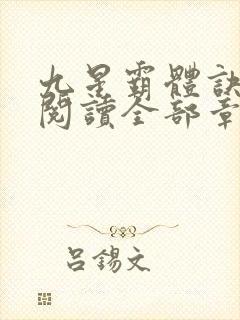 九星霸體訣
閱讀全部章
吕錫文